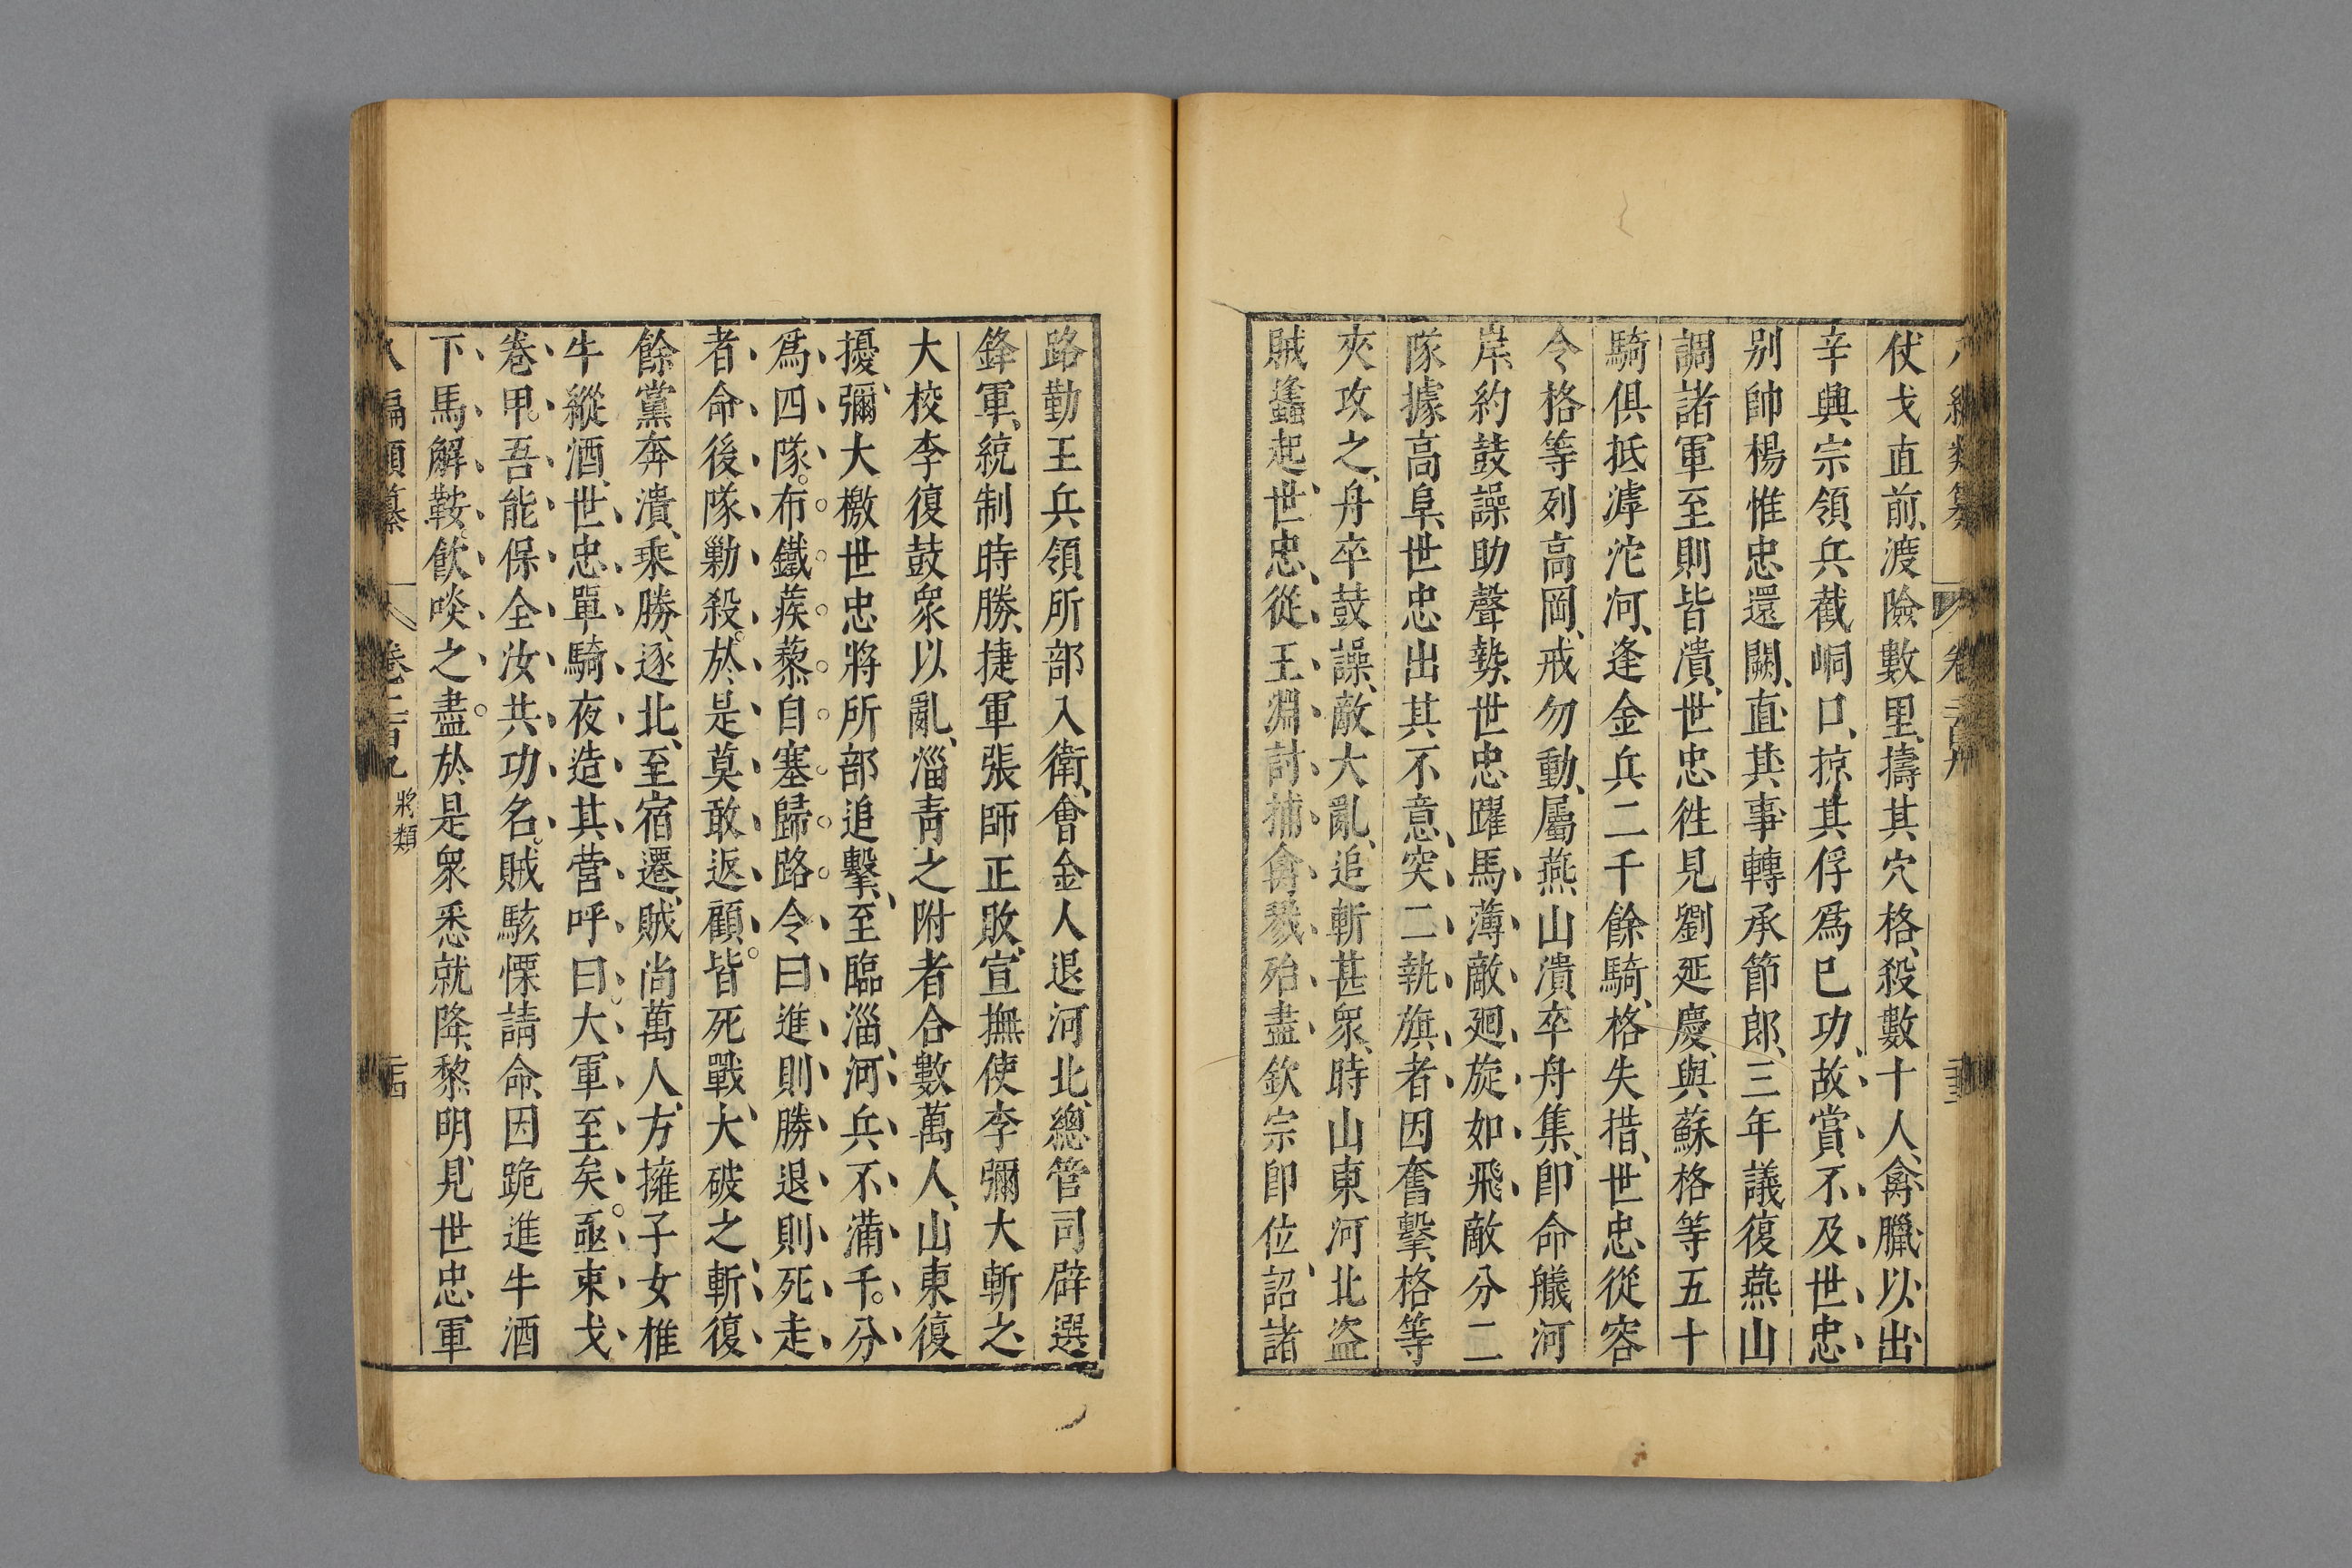 仗戈直前、渡險數里、擣其穴格、殺數十人、禽臘以出
辛興宗領兵截峒口、掠其俘爲已功、故賞不及世忠、
别帥楊惟忠還闕、直其事轉承節郎、三年議復燕山
調諸軍至則皆潰、世忠徃見劉延慶、與蘇格等五十
騎俱抵滹沱河、逢金兵二千餘騎、格失措、世忠從容
令格等列高岡、戒勿動、屬燕山潰卒舟集、卽命艤河
岸、約鼓譟助聲勢、世忠躍馬薄敵廻旋如飛敵分二
隊據高阜、世忠出其不意、突二執旗者因奮擊、格等
夾攻之、舟卒鼓譟、敵大亂、追斬甚衆、時山東河北盗
賊蠭起、世忠從王淵討捕禽戮殆盡欽宗卽位、詔諸
路勤王兵領所部入衛、會金人退河北、總管司辟選
鋒軍、統制時勝捷軍張師正敗、宣撫使李彌大斬之
大校李復鼓衆以亂、淄青之附者合數萬人、山東復
擾、彌大檄世忠將所部追擊、至臨淄河、兵不滿千。分
爲四隊。布鐵蒺藜自塞歸路令曰進則勝退則死走
者命後隊勦殺。於是莫敢返顧。皆死戰、大破之、斬復
餘黨奔潰、乘勝逐北、至宿遷、賊尚萬人、方擁子女椎
牛縱酒、世忠單騎夜造其營呼曰。大軍至矣。亟束戈
卷甲。吾能保全汝共功名。賊駭慄請命、因跪進牛酒
下馬解鞍。飲啖之盡。於是衆悉就降、黎明、見世忠軍
編類纂
將類